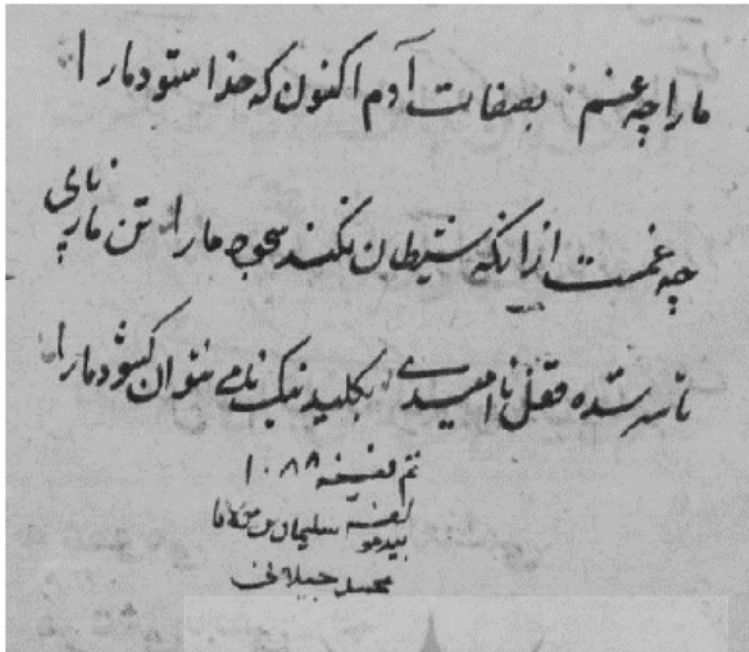 ما را چه غم بصفات آدم اکنون که خدا ستود ما را
چه غمست ازانکه شیطان نکند سجود ما را تن ما ز پای
تا سر شده قفل نا امیدی بکلید نیک نامی نتوان کشود ما را
تم فی سنه ۱۰۸۸
لنفسه سلیمان بن
بیده
محمد جیلانی